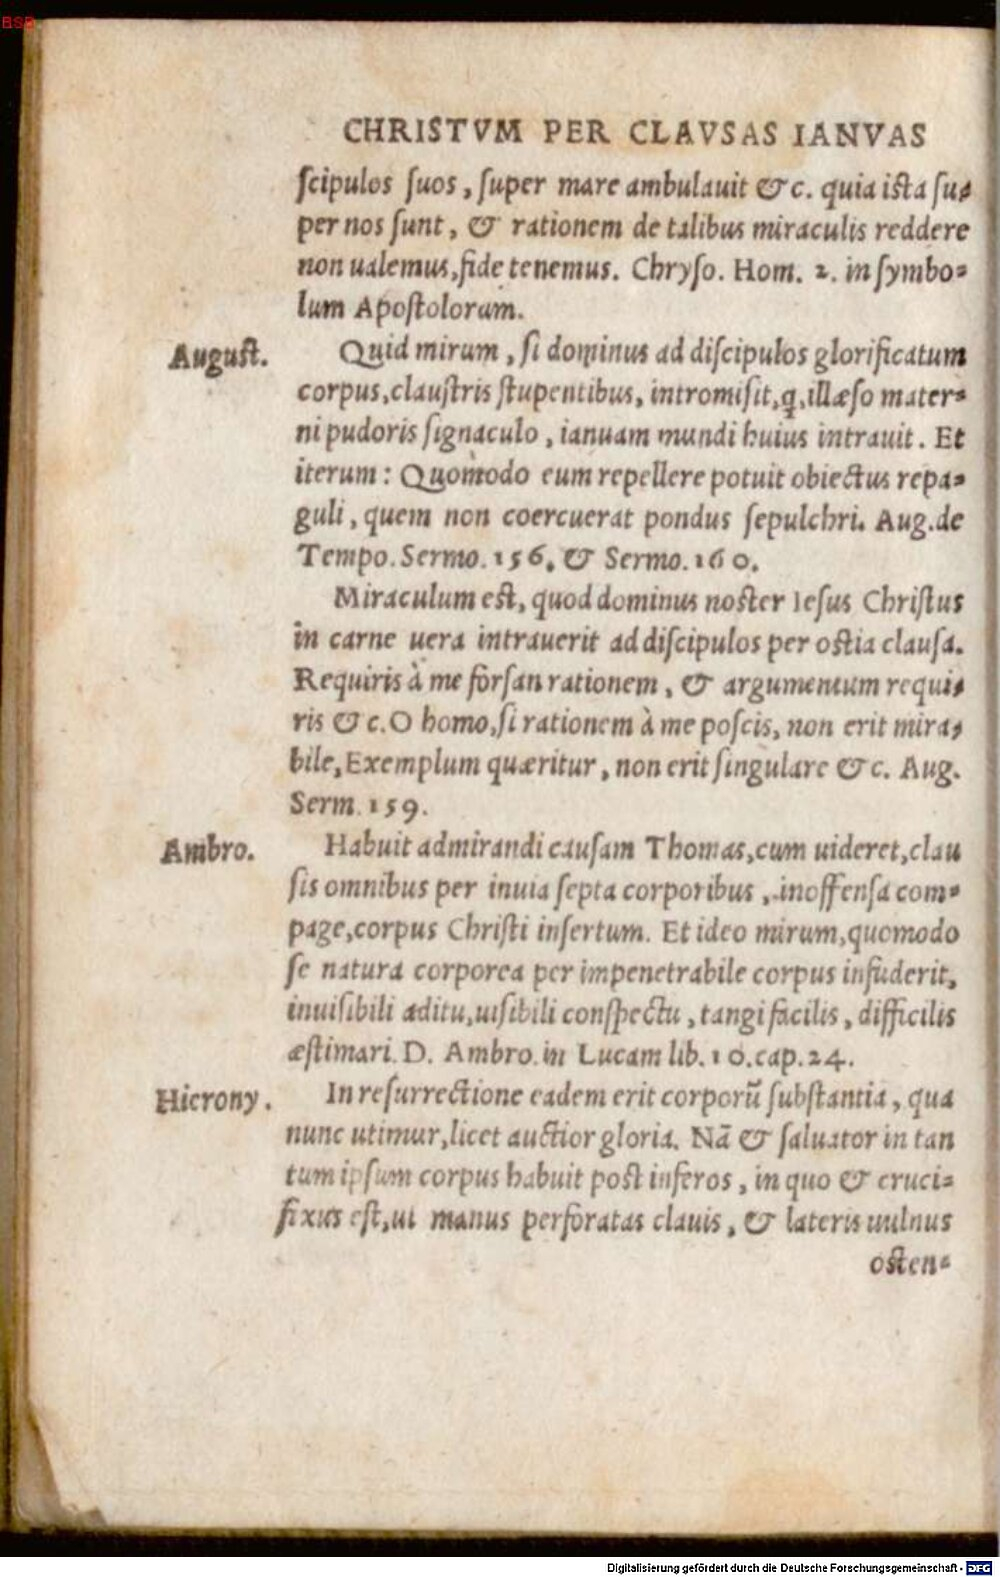 BSB
CHRISTVM PER CLAVSAS IANVAS
ſcipulos ſuos, ſuper mare ambulauit &c. quia iſta ſu-
per nos ſunt, & rationem de talibus miraculis reddere
non ualemus, fide tenemus. Chryſo. Hom. 2. in ſymbo-
lum Apoſtolorum.
Auguſt.
Quid mirum, ſi dominus ad diſcipulos glorificatum
corpus, clauſtris ſtupentibus, intromiſit, q, illæſo mater-
ni pudoris ſignaculo, ianuam mundi huius intrauit. Et
iterum: Quomodo eum repellere potuit obiectus repa-
guli, quem non coercuerat pondus ſepulchri. Aug. de
Tempo. Sermo. 156. & Sermo. 160.
Miraculum eſt, quod dominus noſter Ieſus Chriſtus
in carne uera intrauerit ad diſcipulos per oſtia clauſa.
Requiris à me forſan rationem, & argumentum requi-
ris &c. O homo, ſi rationem à me poſcis, non erit mira-
bile, Exemplum quæritur, non erit ſingulare &c. Aug.
Serm. 159.
Ambro.
Habuit admirandi cauſam Thomas, cum uideret, clau
ſis omnibus per inuia ſepta corporibus, inoffenſa com-
page, corpus Chriſti inſertum. Et ideo mirum, quomodo
ſe natura corporea per impenetrabile corpus infuderit,
inuiſibili aditu, uiſibili conſpectu, tangi facilis, difficilis
æſtimari. D. Ambro. in Lucam lib. 10. cap. 24.
Hierony.
In reſurrectione eadem erit corporũ ſubſtantia, qua
nunc utimur, licet auctior gloria. Nã & ſaluator in tan
tum ipſum corpus habuit poſt inferos, in quo & cruci-
fixus eſt, ut manus perforatas clauis, & lateris uulnus
oſten-
Digitalisierung gefördert durch die Deutsche Forschungsgemeinschaft - DFG